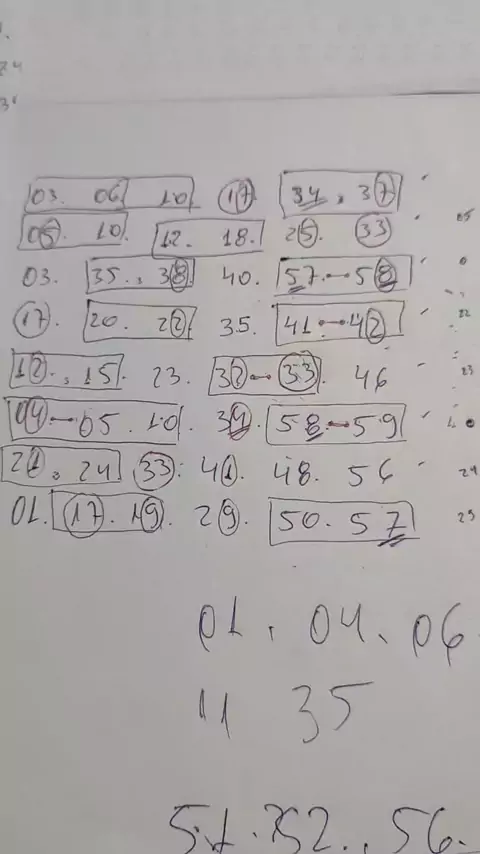 24
03. 06 10 17 34. 37
05. 10 12. 18. 25. 33 05
03. 35. 38 40. 57-58
17. 20. 22 35. 41-42 22
12. 15 23. 32-33. 46 23
04-05. 10. 39. 58-59
21. 24 33. 41. 48. 56 24
01. 17. 19. 29. 50. 57 29
01. 04. 06
11 35
52.. 56.